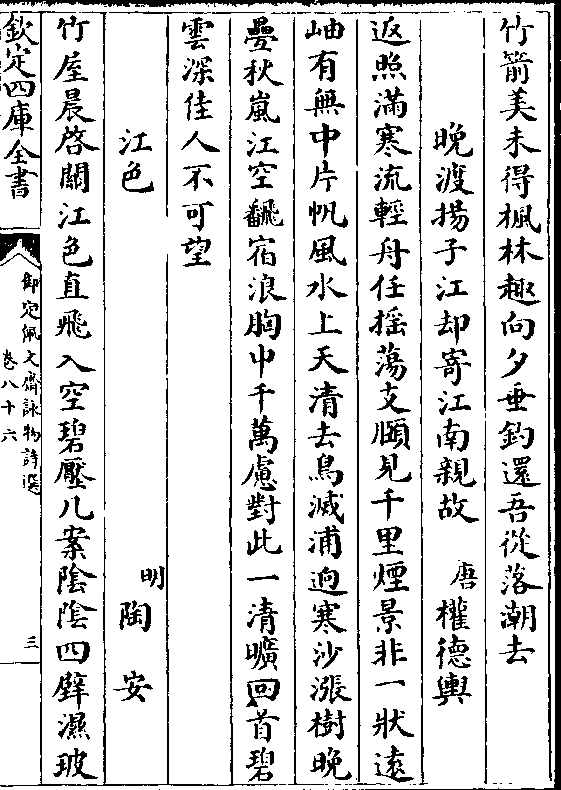 竹箭美未得楓林趣向夕垂釣還吾從落潮去
晚渡揚子江却寄江南親故　唐　權德輿
返照滿寒流輕舟任揺蕩支頤見千里煙景非一狀遠
岫有無中片帆風水上天清去鳥滅浦迥寒沙漲樹晚
疊秋嵐江空飜宿浪胸中千萬慮對此一清曠回首碧
雲深佳人不可望
江色　明　陶安
竹屋晨啓關江色直飛入空碧壓几案陰陰四壁濕玻
欽定四庫全書
御定佩文齋詠物詩選
卷八十六
三